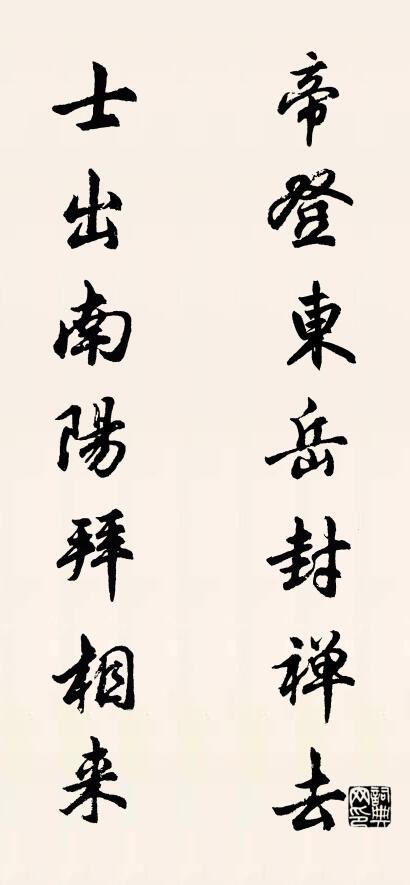 帝登東岳封禅去
士出南陽拜相来
詞典网印